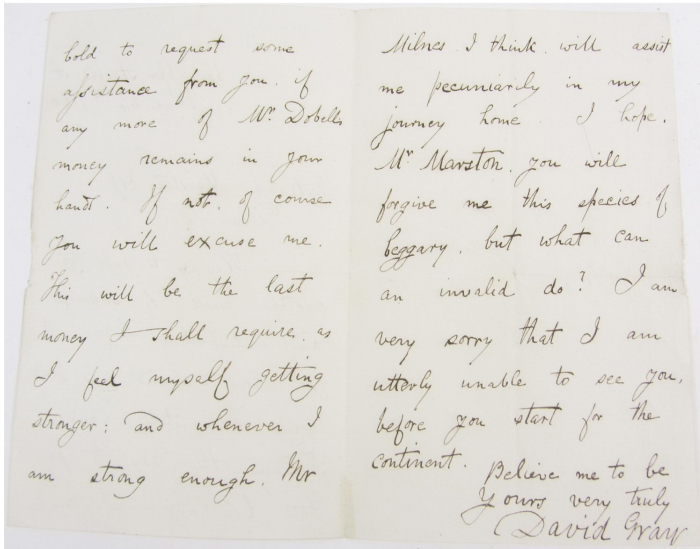 bold to request some
assistance from you. if
any more of Mr. Dobells
money remains in your
hands. If not. of course
you will excuse me.
This will be the last
money I shall require. as
I feel myself getting
stronger; and whenever I
am strong enough. Mr
Milnes I think. will assist
me pecuniarily in my
journey home. I hope.
Mr. Marston. you will
forgive me this species of
beggary. but what can
an invalid do? I am
very sorry that I am
utterly unable to see you.
before you start for the
continent.
Believe me to be
Yours very truly
David Gray